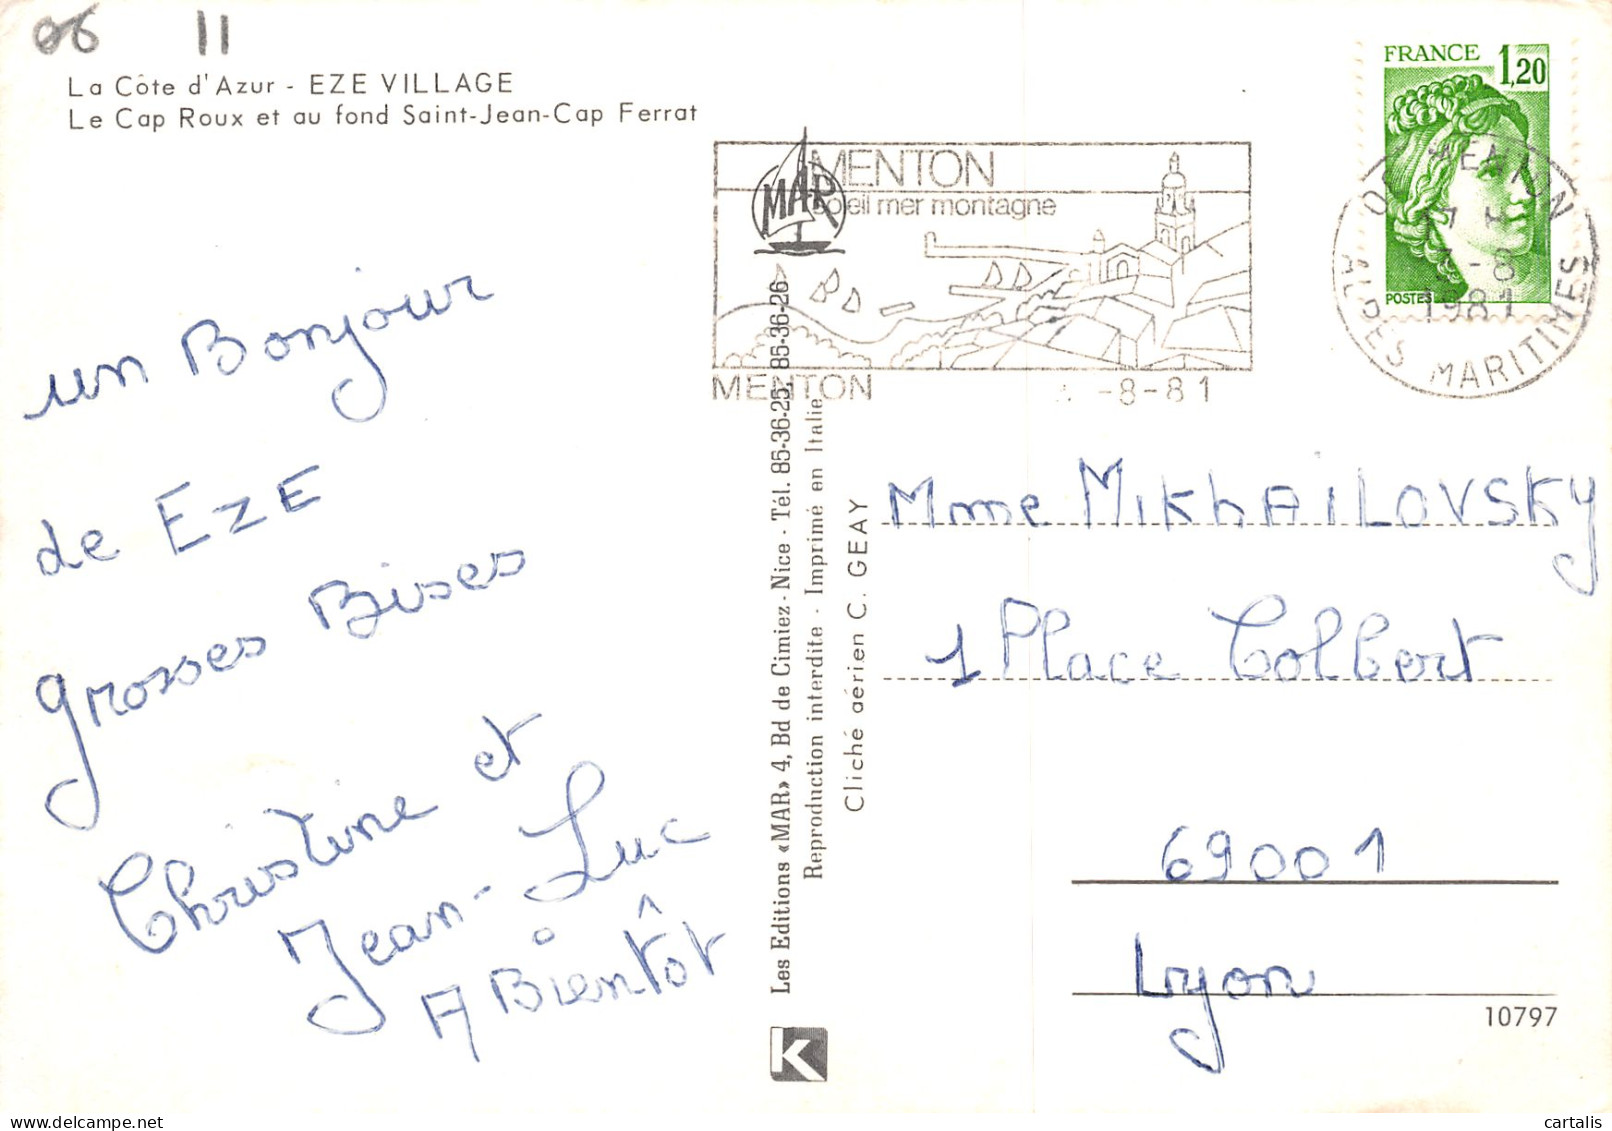 06 11
La Côte d'Azur - EZE VILLAGE
Le Cap Roux et au fond Saint-Jean-Cap Ferrat
FRANCE 1,20
POSTES
MENTON
soleil mer montagne
MAR
MENTON
-8-81
MENTON
1981
ALPES MARITIMES
un Bonjour
de EZE
grosses Bises
Christine et
Jean-Luc
A Bientôt
Les Editions «MAR» 4, Bd de Cimiez - Nice - Tél. 85-36-25, 85-36-26
Reproduction interdite - Imprimé en Italie
Cliché aérien C. GEAY
Mme MIKHAILOVSKY
1 Place Colbert
69001
Lyon
10797
K
cartalis